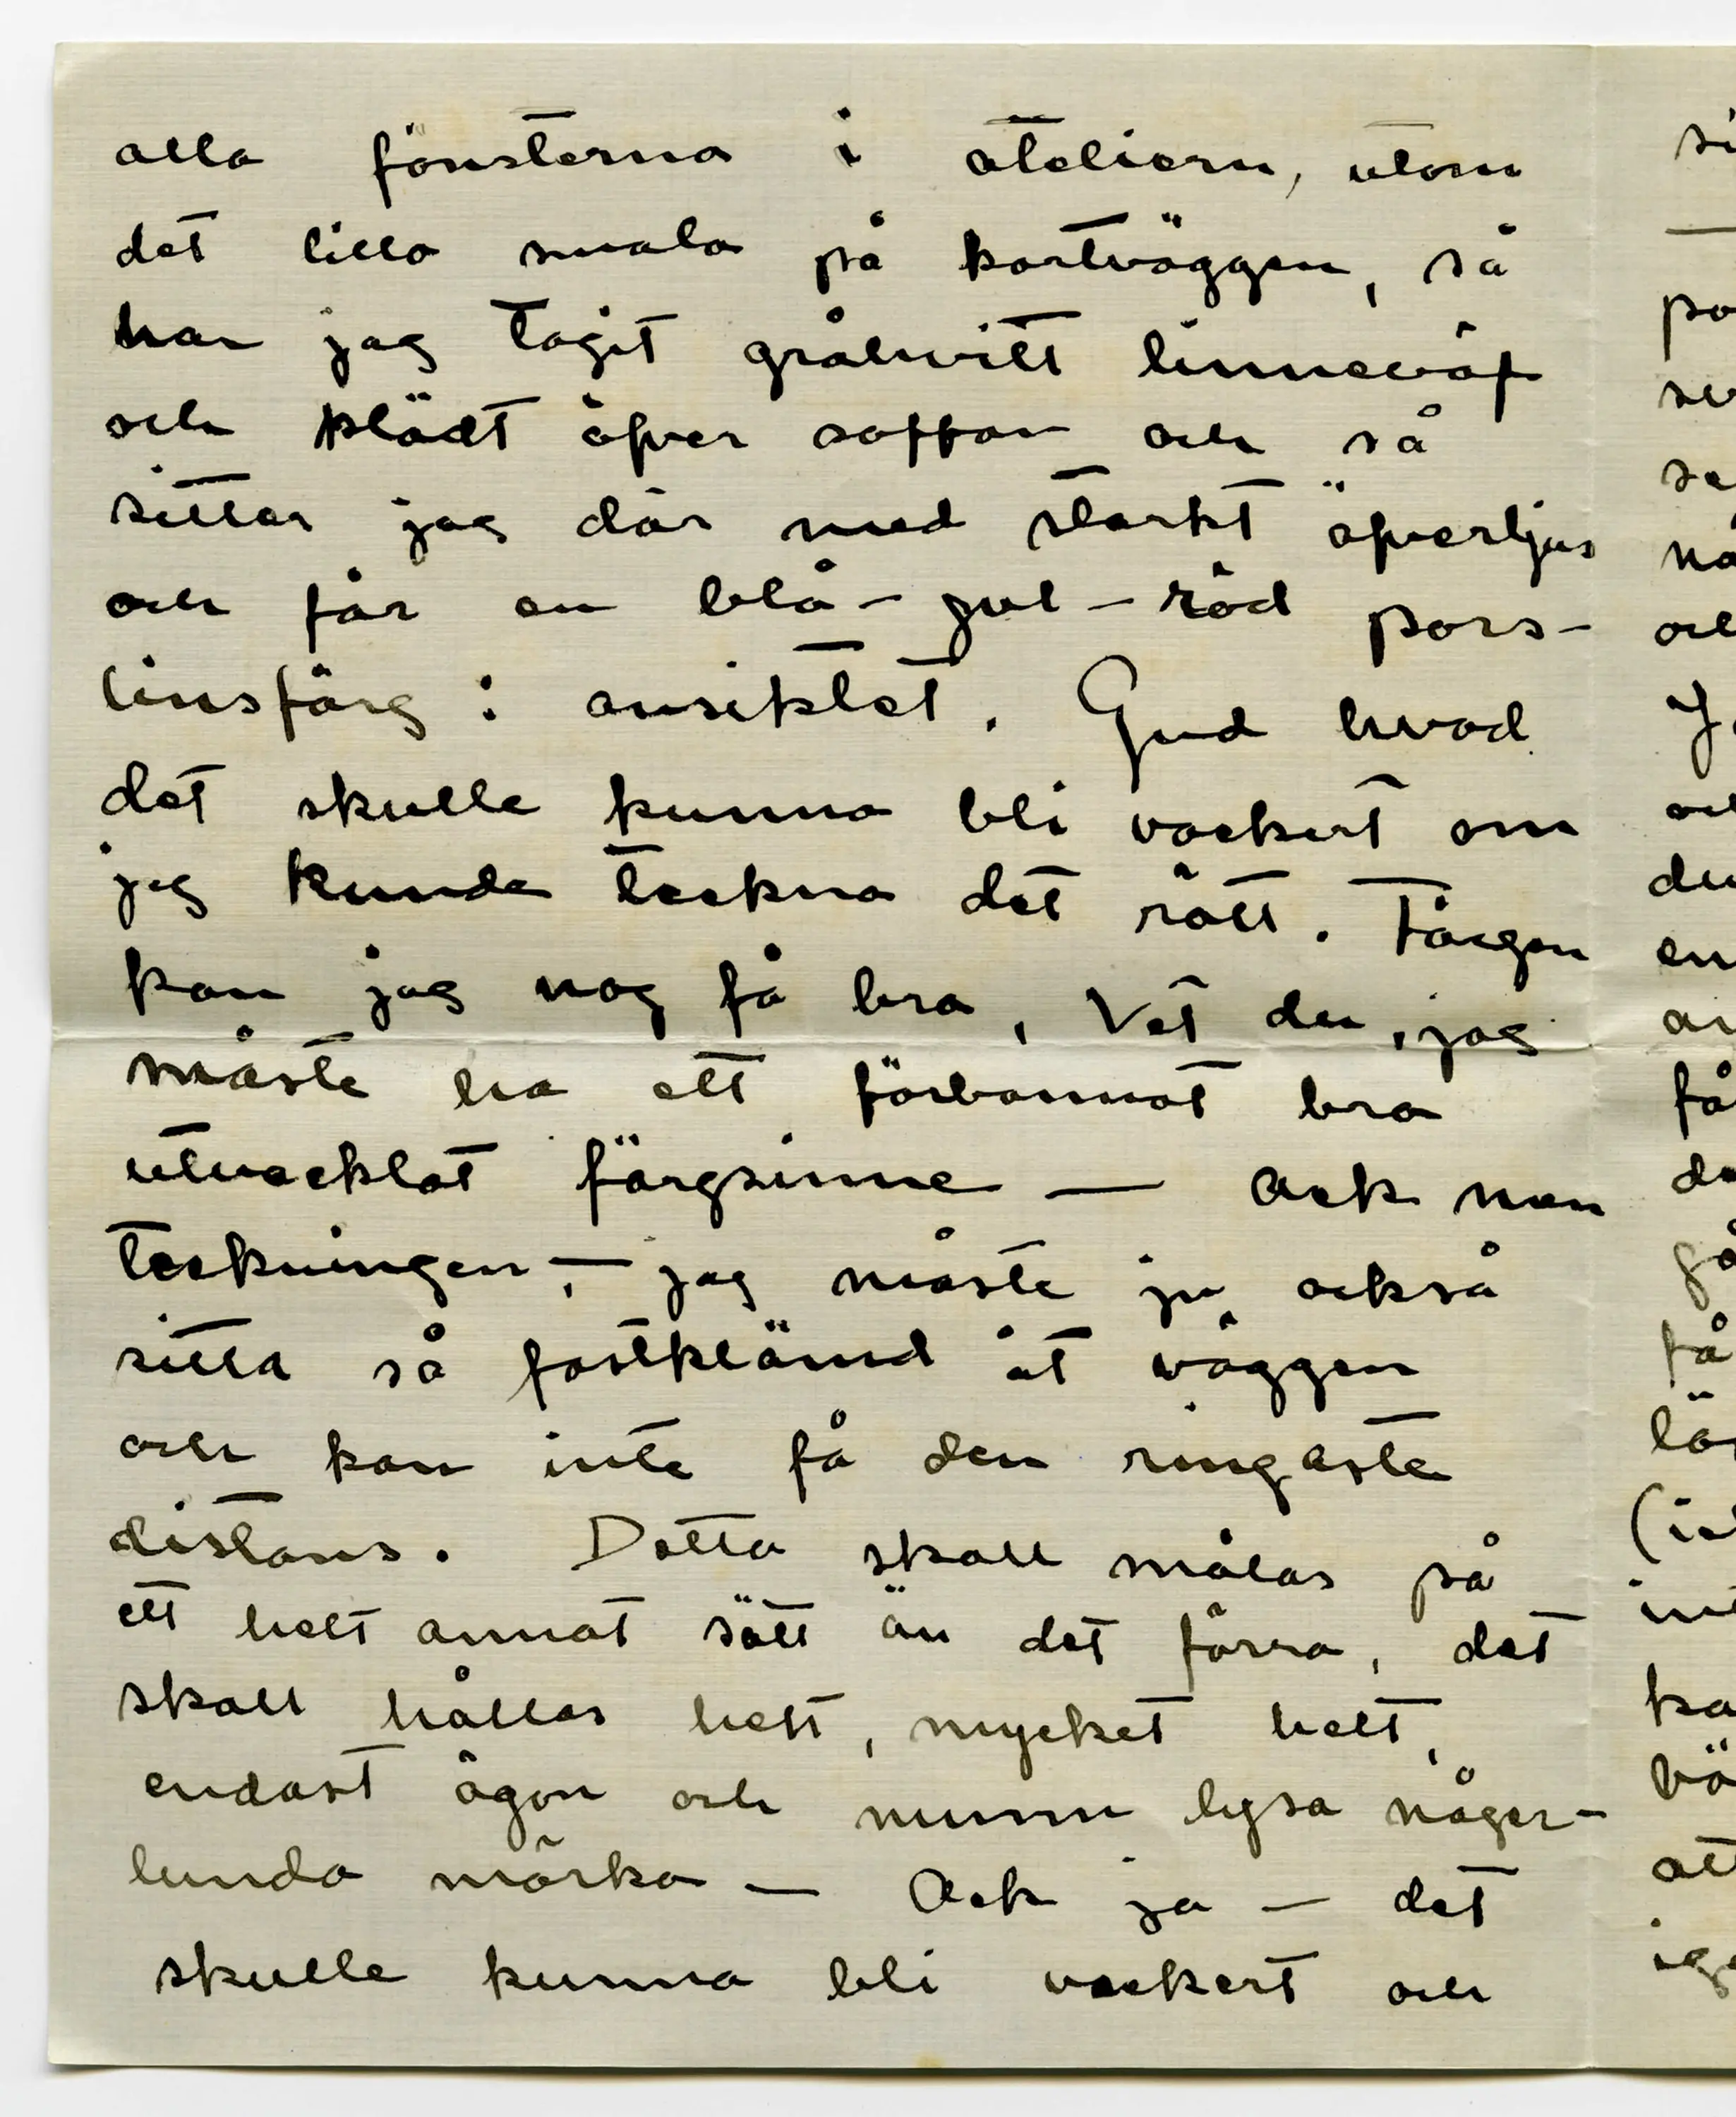 alla fönsterna i ateliern, utom
det lilla smala på kortväggen, så
har jag tagit gråhvitt linneväf
och klädt öfver soffan och så
sitter jag där med starkt öfverljus
och får en blå – gul – röd pors-
linsfärg i ansiktet. Gud hvad
det skulle kunna bli vackert om
jag kunde teckna det rätt. Färgen
kan jag nog få bra, Vet du, jag
måste ha ett förbannat bra
utvecklat färgsinne — Ack men
teckningen, — jag måste ju också
sitta så fastklämd åt väggen
och kan inte få den ringaste
distans. Detta skall målas på
ett helt annat sätt än det förra, det
skall hållas helt, mycket helt,
endast ögon och munn lysa någer-
lunda mörka — Ack ja — det
skulle kunna bli vackert och